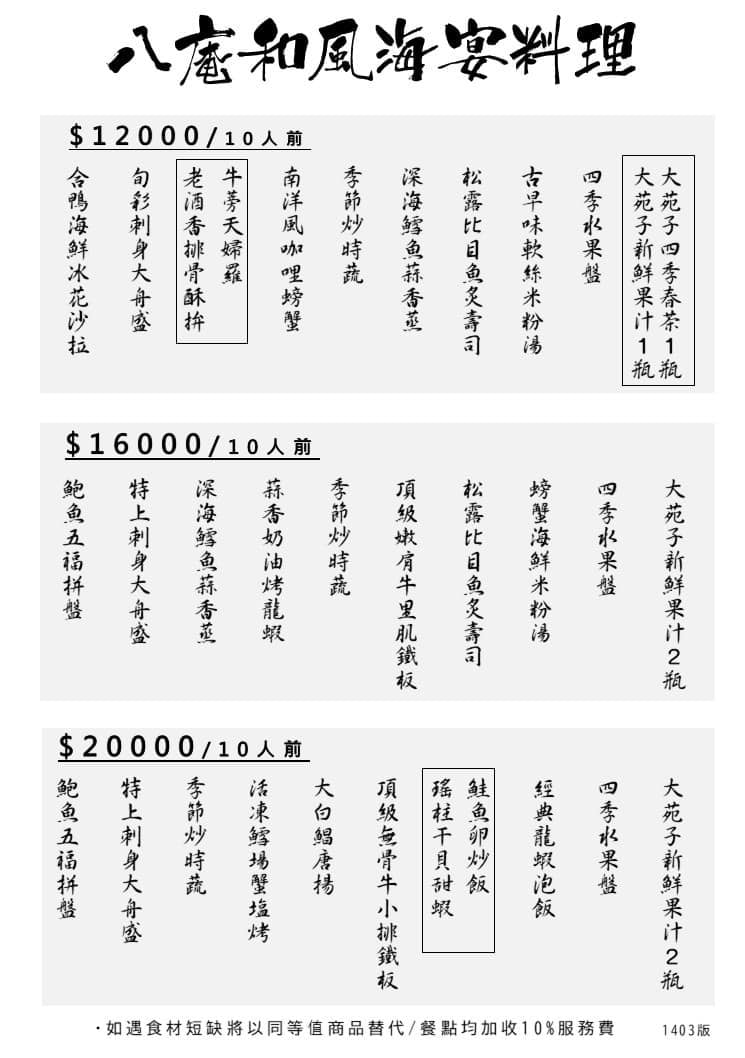 八庵和風海宴料理
$12000/10人前
合鴨海鮮冰花沙拉
旬彩刺身大舟盛
老酒香排骨酥拚
牛蒡天婦羅
南洋風咖哩螃蟹
季節炒時蔬
深海鱈魚蒜香蒸
松露比目魚炙壽司
古早味軟絲米粉湯
四季水果盤
大苑子新鮮果汁1瓶
大苑子四季春茶1瓶
$16000/10人前
鮑魚五福拼盤
特上刺身大舟盛
深海鱈魚蒜香蒸
蒜香奶油烤龍蝦
季節炒時蔬
頂級嫩肩牛里肌鐵板
松露比目魚炙壽司
螃蟹海鮮米粉湯
四季水果盤
大苑子新鮮果汁2瓶
$20000/10人前
鮑魚五福拼盤
特上刺身大舟盛
季節炒時蔬
活凍鱈場蟹塩烤
大白鯧唐揚
頂級無骨牛小排鐵板
瑤柱干貝甜蝦
鮭魚卵炒飯
經典龍蝦泡飯
四季水果盤
大苑子新鮮果汁2瓶
·如遇食材短缺將以同等值商品替代/餐點均加收10%服務費
1403版